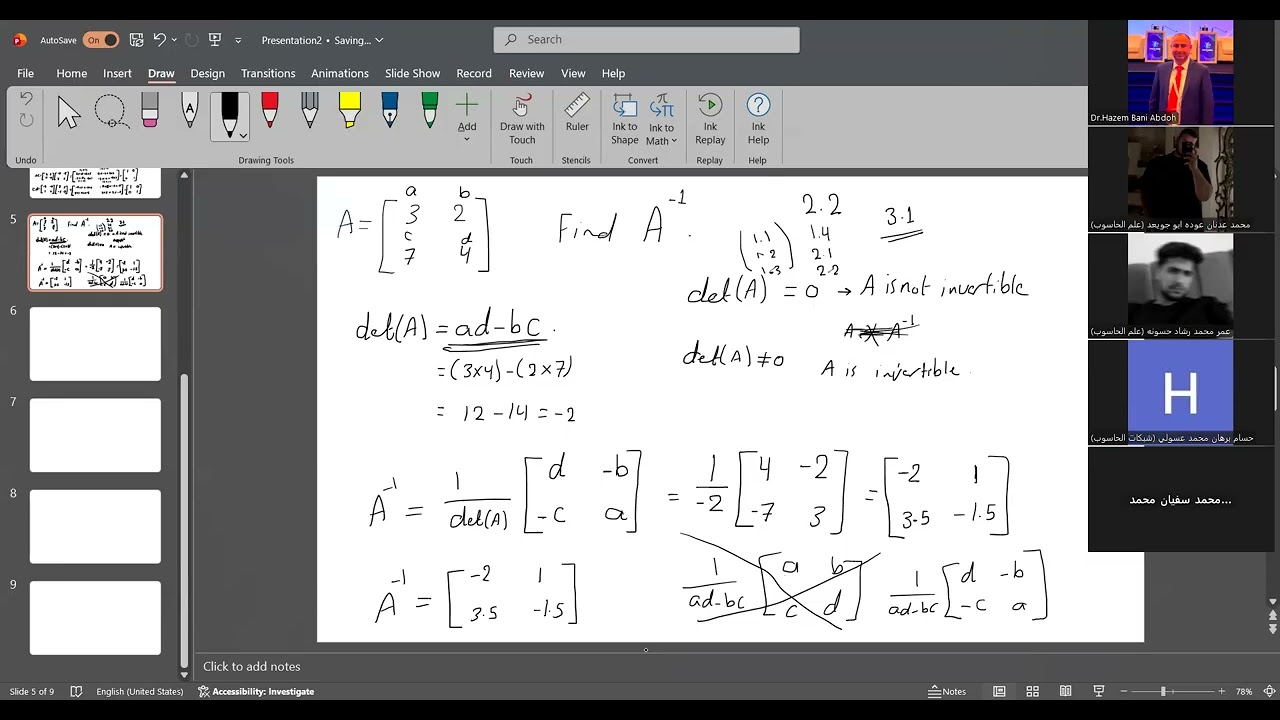 AutoSave On Presentation2 • Saving... Search
File Home Insert Draw Design Transitions Animations Slide Show Record Review View Help
Undo
Add
Draw with Touch
Ruler
Ink to Shape
Ink to Math
Ink Replay
Ink Help
Drawing Tools Touch Stencils Convert Replay Help
5
6
7
8
9
a b
A = [3 2
c d
7 4]
Find A⁻¹.
2.2
3.1
(1.1 1.4
1.2 2.1
1.3) 2.2
det(A) = 0 → A is not invertible
det(A) = ad-bc.
A A⁻¹
det(A) ≠ 0 A is invertible.
= (3×4) - (2×7)
= 12 - 14 = -2
A⁻¹ = 1/det(A) [d -b
-c a] = 1/-2 [4 -2
-7 3] = [-2 1
3.5 -1.5]
A⁻¹ = [-2 1
3.5 -1.5]
1/ad-bc [a b
c d]
1/ad-bc [d -b
-c a]
Click to add notes
Slide 5 of 9 English (United States) Accessibility: Investigate Notes 78%
Dr.Hazem Bani Abdoh
محمد عدنان عوده ابو جويعد (علم الحاسوب)
عمر محمد رشاد حسونه (علم الحاسوب)
H
حسام برهان محمد عسولي (شبكات الحاسوب)
محمد سفيان محمد...